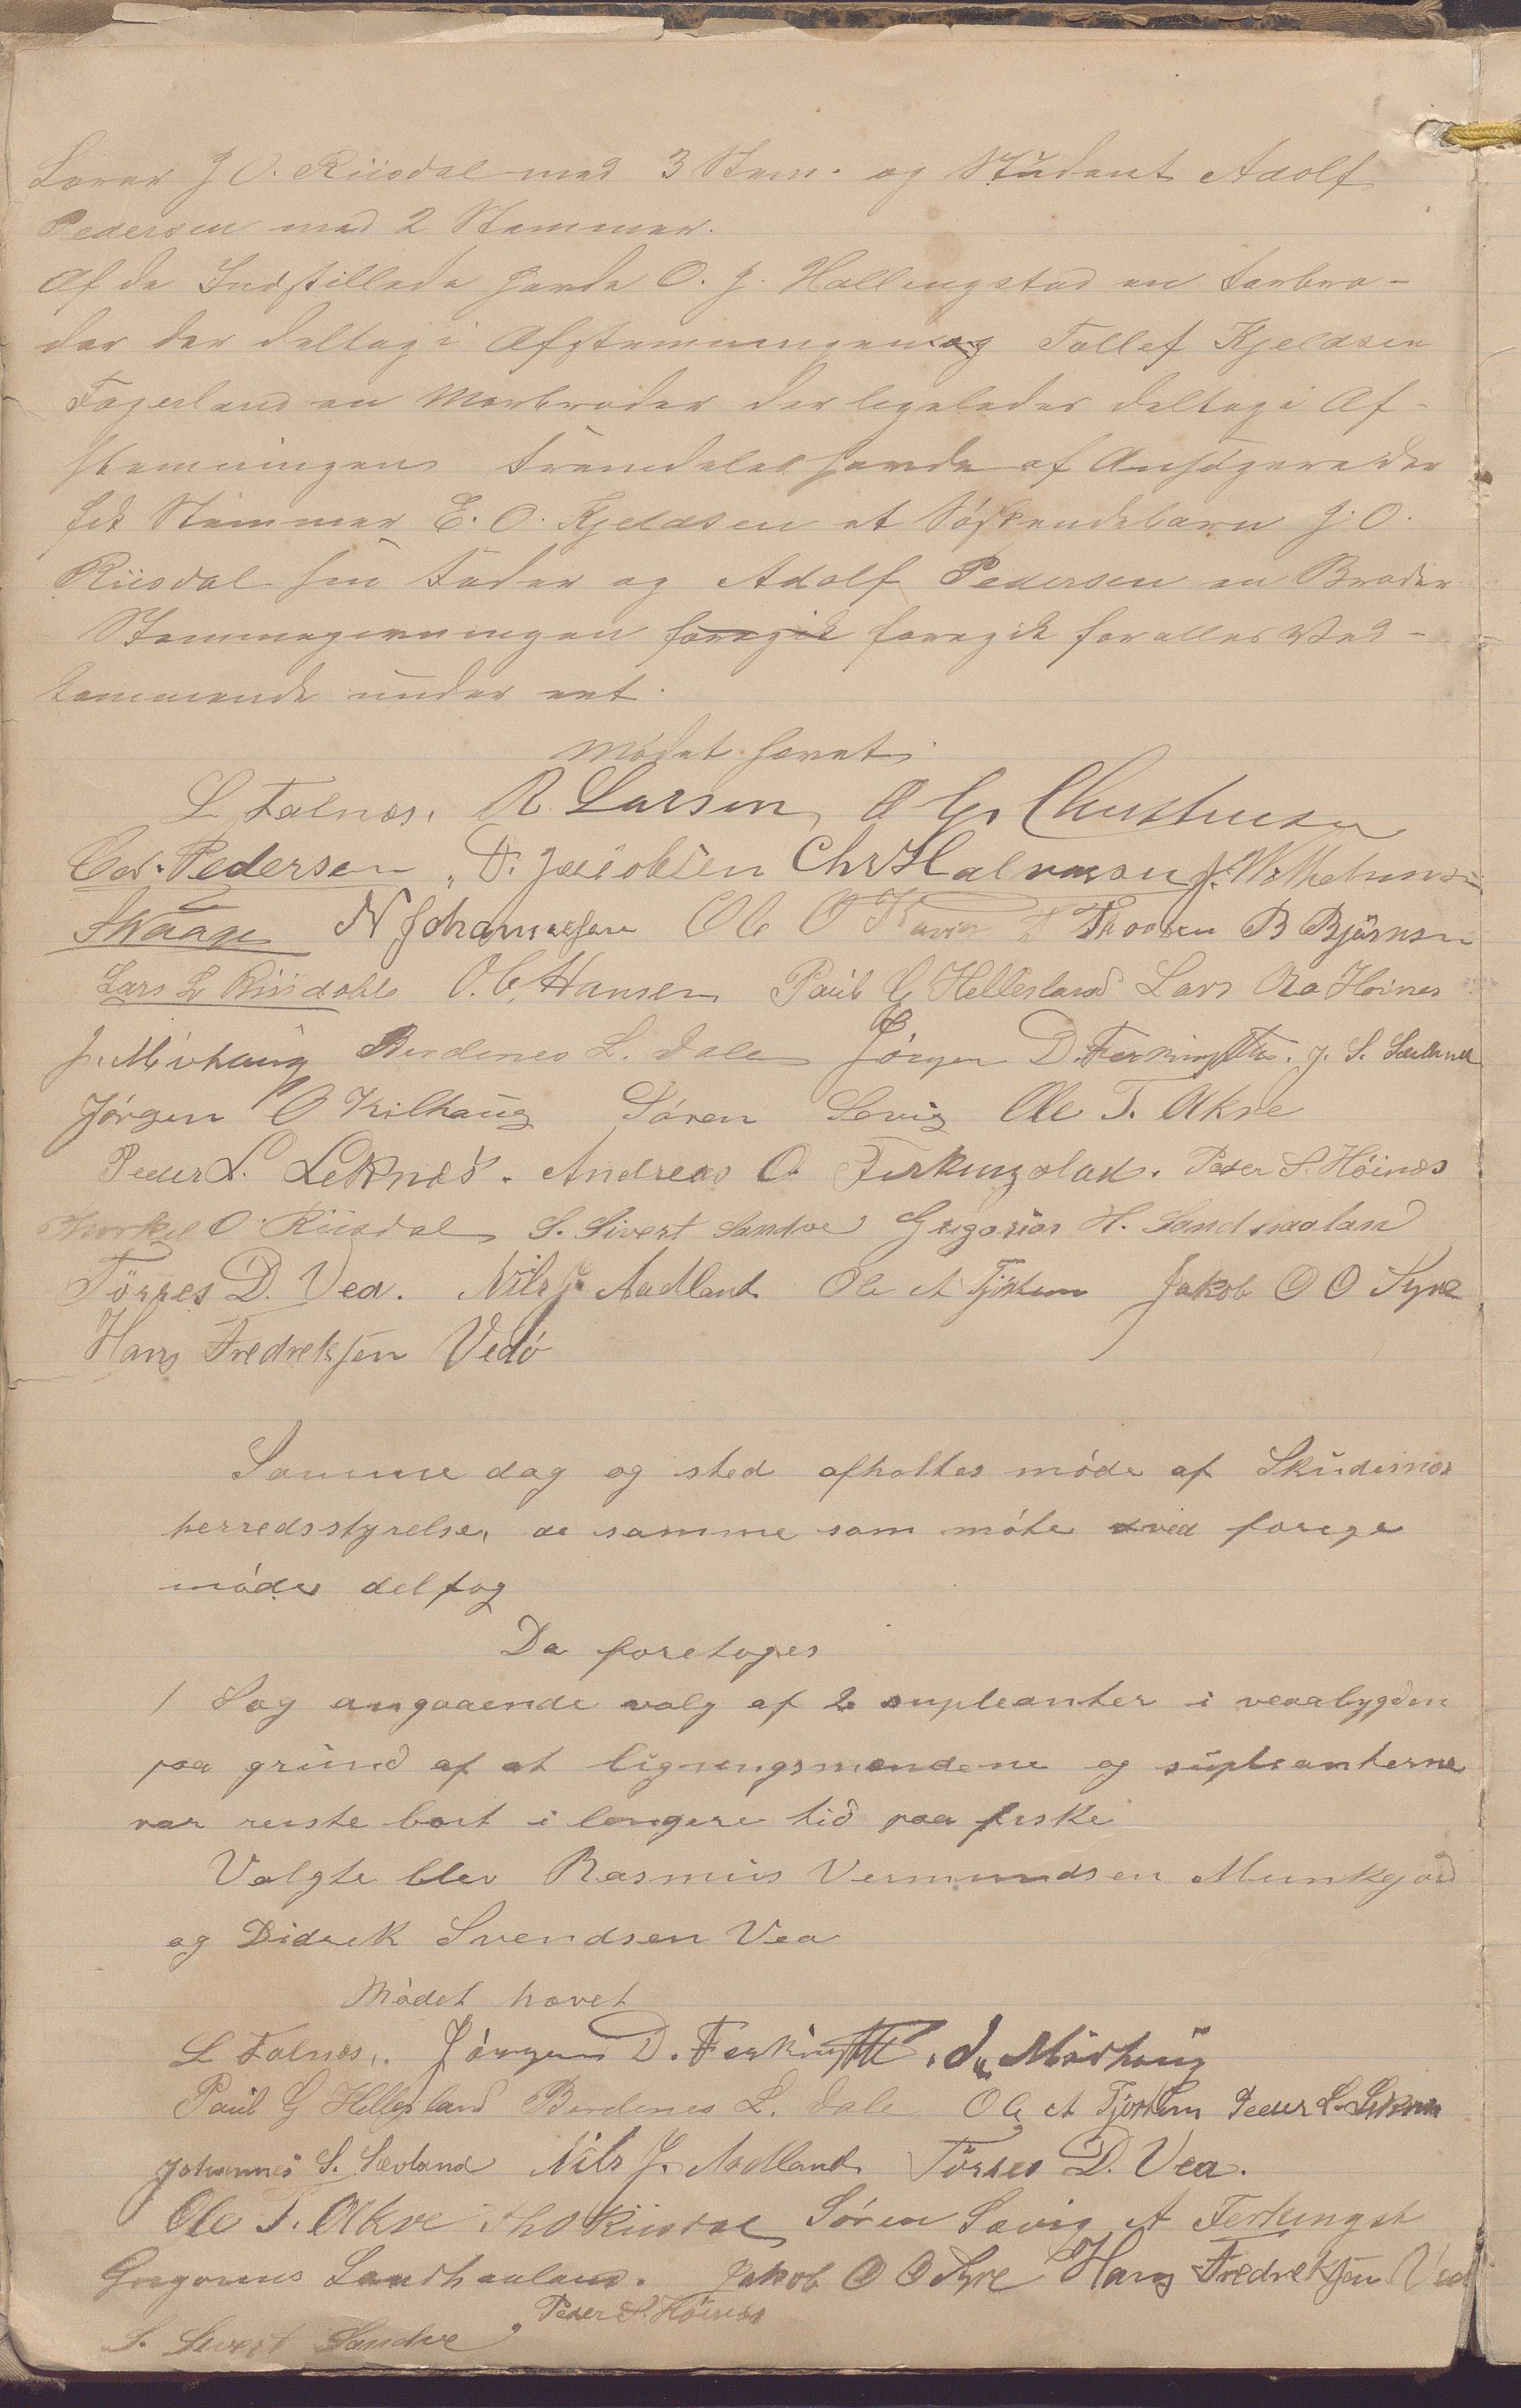 Lærer J. O. Riisdal med 3 Stem. og Student Adolf
Pedersen med 2 Stemmer.
Af de Indstillede havde O. J. Hallingstad en Farbro-
der der deltog i Afstemningen og Tollef Kjeldsen
Fagerland en Morbroder der ligeledes deltog i Af-
stemningen Fremdeles havde af Ansøgere der
fik Stemmer E. O. Kjeldsen et Søskendebarn J. O.
Riisdal sin Fader og Adolf Pedersen en Broder
Stemmegivningen foregik foregik for alles Ved-
kommende under eet.
Mødet hævet
L Falnæs. R. Larsen, O Chr Christensen
Edv. Pedersen, T. Jacobsen Chr Halvorsen J. Wilhelmsen
Waage N Johannessen Ole O B Bjørnsen
Lars L Riisdahl O. C. Hansen Paul G Hellesland Lars Høines
J. Mørhaug Berdines L. Dale Jørgen D. Ferkingst. J. S. Sævland
Jørgen O Kilhaug Søren Sævig Ole T. Akre
Peder L. Leknæs. Andreas O Ferkingstad. Peder S. Høinæs
Thorkel O. Riisdal S. Sivert Sandve Gregorius H. Sandhaaland
Törres D. Vea. Nils J. Aadland Ole A Tjøstem Jakob O O Syre
Hans Fredreksen Vedø
Samme dag og sted afholtes møde af Skudenæs
herredsstyrelse, de samme som møte ved forege
møde deltog
Da foretoges
1 Sag angaaende valg af 2 supleanter i veaabygden
paa grund af at ligningsmændene og supleanterne
var reiste bort i længere tid paa fiske
Valgte blev Rasmus Vermundsen Munkejord
og Didrek Svendsen Vea
Mødet hævet
L Falnæs,. Jørgen D. Ferkingst. J. Mørhaug
Paul G Hellesland Berdines L. Dale Ole A Tjøstem Peder L. Leknæs
Johannes S. Sævland Nils J. Aadland Törres D. Vea.
Ole T. Akre Th O Riisdal Søren Sævig A Ferkingst
Gregorius Sandhaaland. Jakob O O Syre Hans Fredreksen Ved
Peder S. Høinæs
S. Sivert Sandve